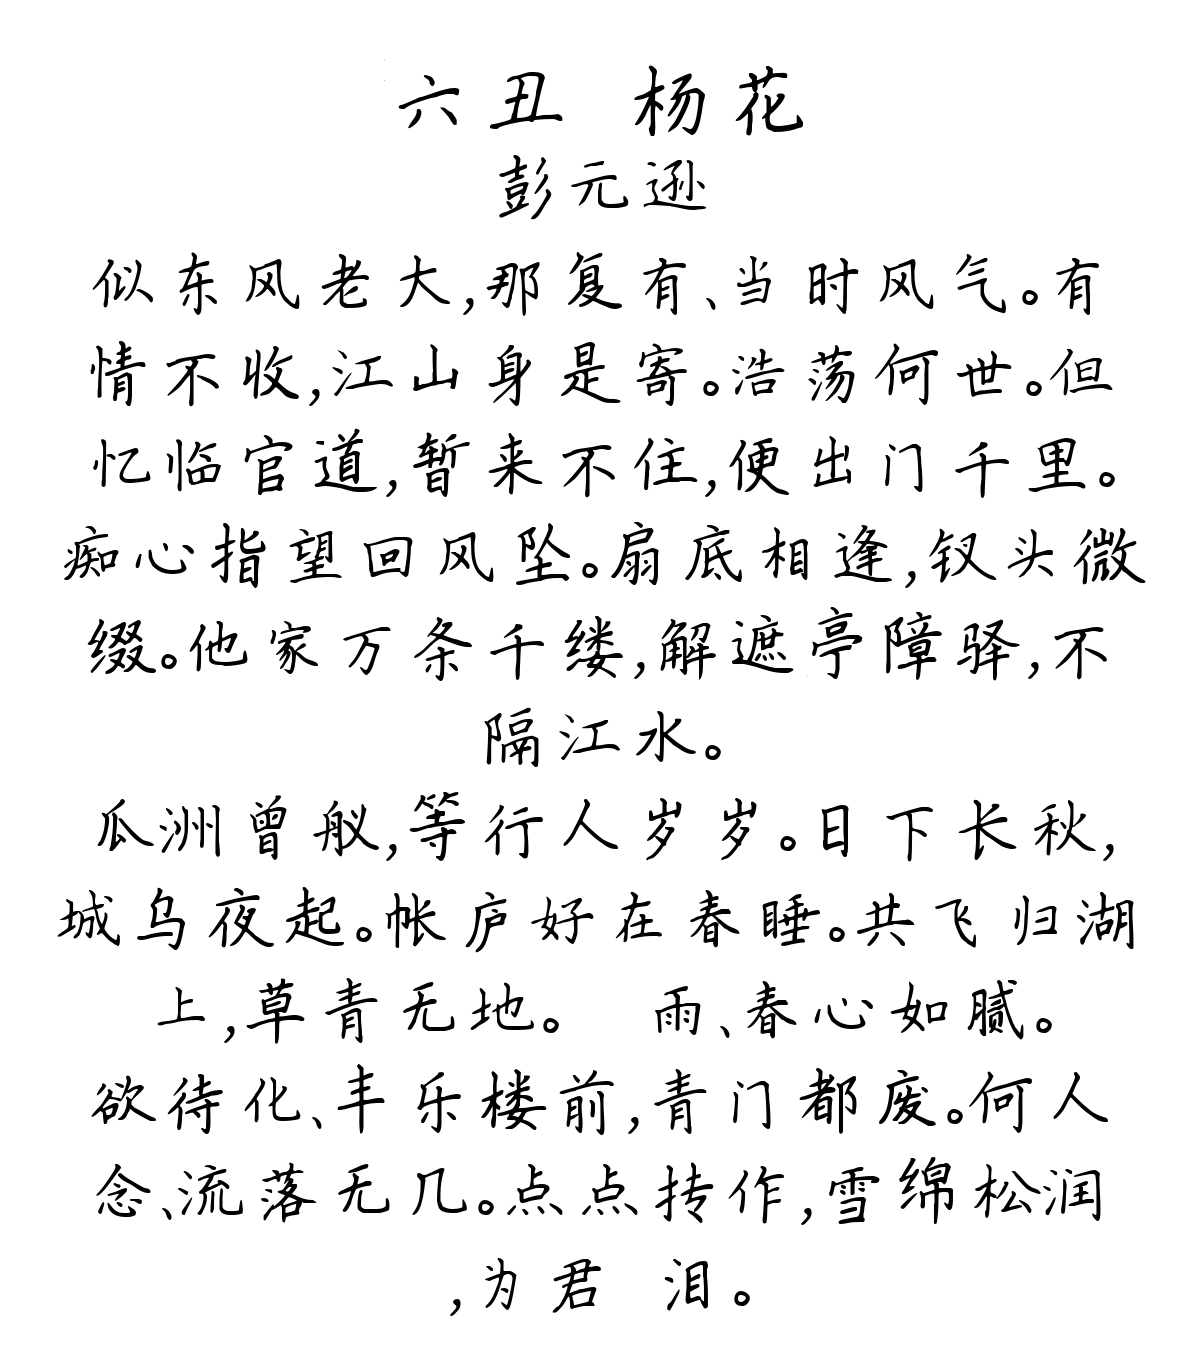 六丑 杨花
彭元逊
似东风老大,那复有、当时风气。有
情不收,江山身是寄。浩荡何世。但
忆临官道,暂来不住,便出门千里。
痴心指望回风坠。扇底相逢,钗头微
缀。他家万条千缕,解遮亭障驿,不
隔江水。
瓜洲曾舣,等行人岁岁。日下长秋,
城乌夜起。帐庐好在春睡。共飞归湖
上,草青无地。 雨、春心如腻。
欲待化、丰乐楼前,青门都废。何人
念、流落无几。点点抟作,雪绵松润
,为君 泪。